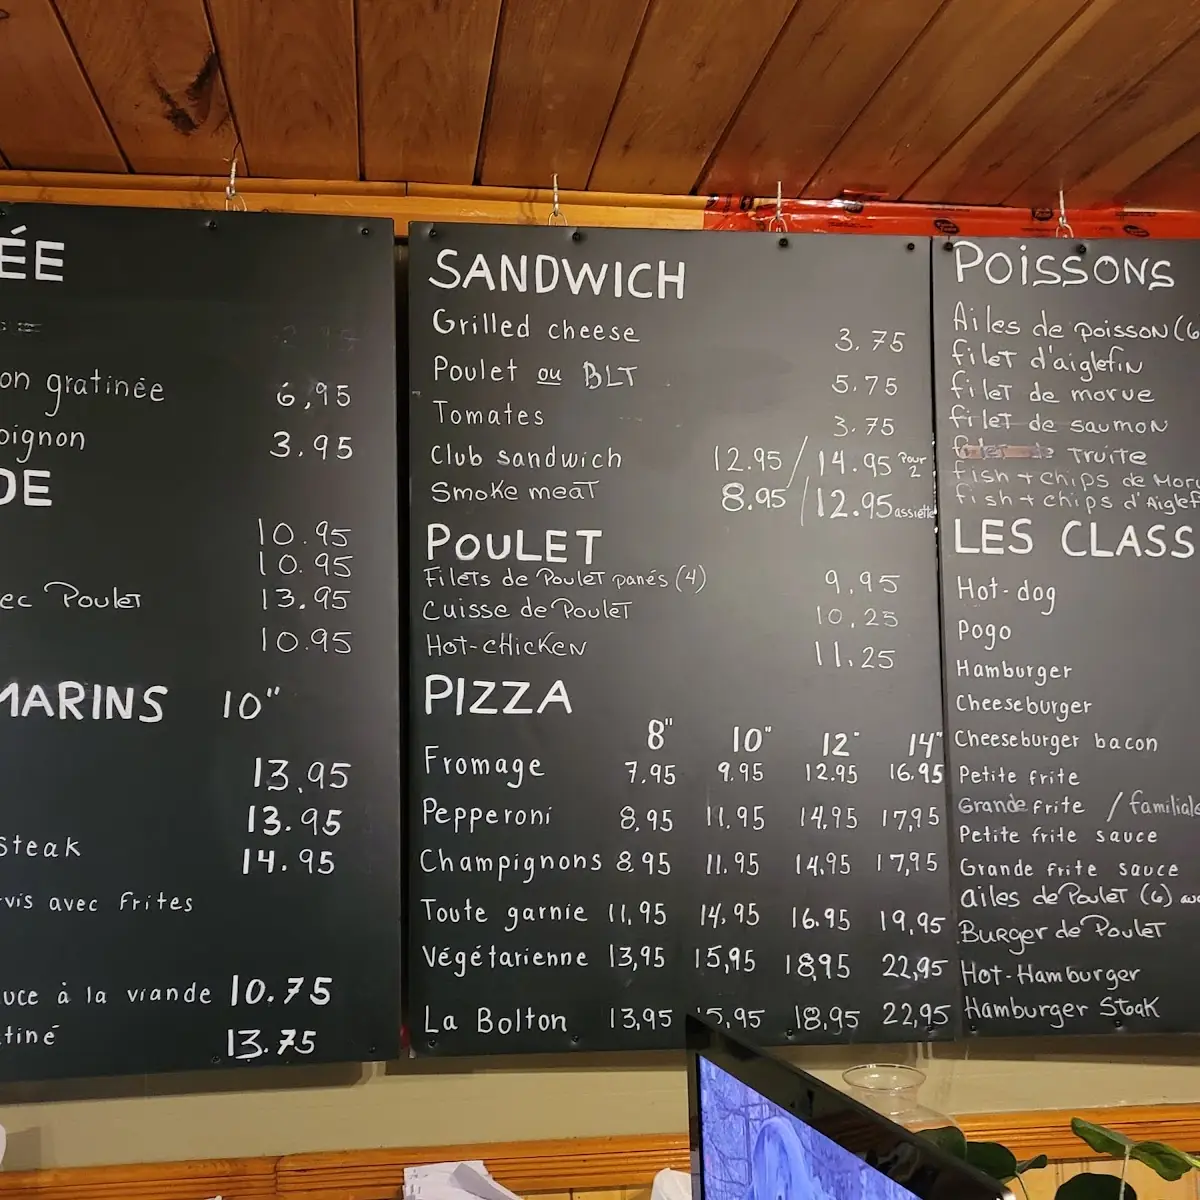 ÉE
on gratinée 6,95
oignon 3.95
DE
10.95
10.95
ec Poulet 13.95
10.95
MARINS 10"
13,95
13.95
Steak 14.95
rvis avec frites
uce à la viande 10.75
tiné 13.75
SANDWICH
Grilled cheese 3.75
Poulet ou BLT 5.75
Tomates 3.75
Club sandwich 12.95 / 14.95 Pour 2
Smoke meat 8.95 / 12.95 assiette
POULET
Filets de Poulet panés (4) 9,95
Cuisse de Poulet 10,25
Hot-chicken 11.25
PIZZA
8" 10" 12" 14"
Fromage 7.95 9.95 12.95 16.95
Pepperoni 8.95 11.95 14.95 17,95
Champignons 8.95 11.95 14.95 17,95
Toute garnie 11,95 14.95 16.95 19,95
Végétarienne 13,95 15,95 18,95 22,95
La Bolton 13,95 15,95 18,95 22,95
POISSONS
Ailes de poisson (6
filet d'aiglefin
filet de morue
filet de saumon
Truite
fish + chips de Moru
fish + chips d'Aiglef
LES CLASS
Hot-dog
Pogo
Hamburger
Cheeseburger
Cheeseburger bacon
Petite frite
Grande frite / familiale
Petite frite sauce
Grande frite sauce
ailes de Poulet (6) av
Burger de Poulet
Hot-Hamburger
Hamburger Steak